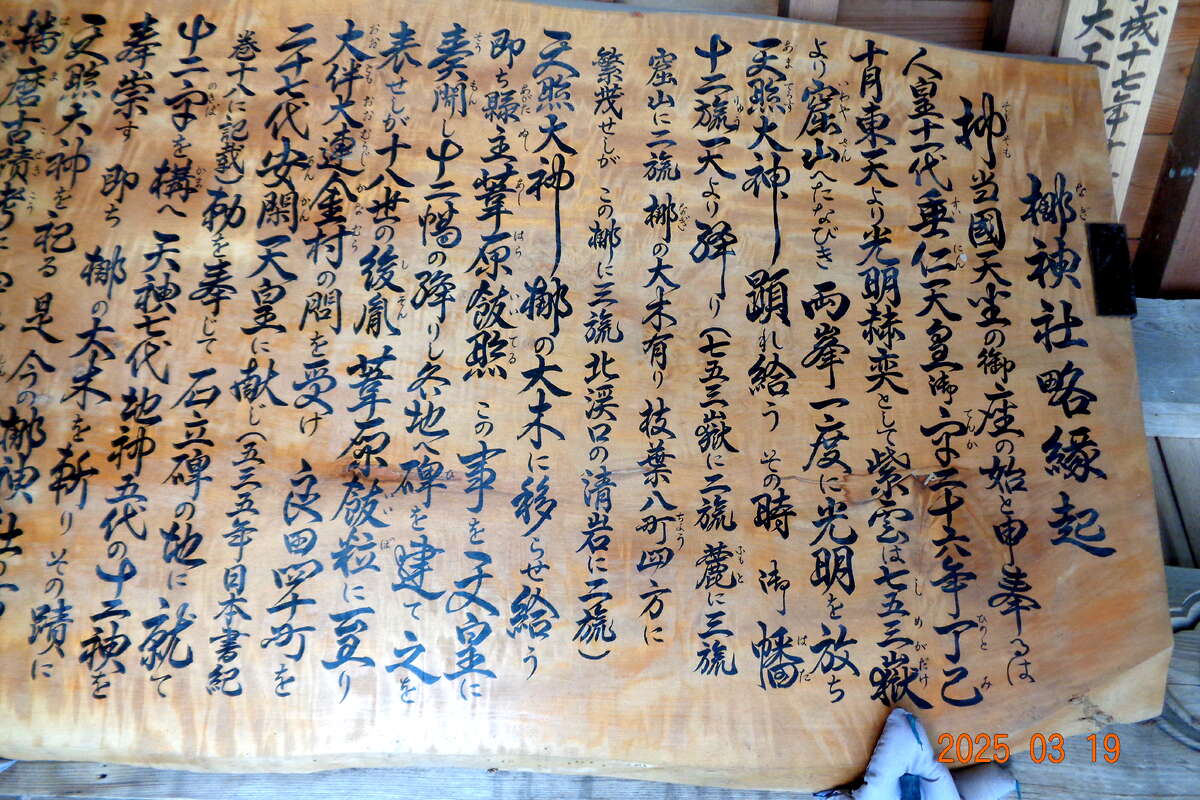 梛神社略縁起
抑当國天坐の御座の始と申奉るは
人皇十一代垂仁天皇御宇二十六年丁己
十月東天より光明赫奕として紫雲は七五三嶽
より窟山へたなびき 両峯一度に光明を放ち
天照大神 顕れ給う その時 御幡
十二旒天より降り(七五三嶽に二旒 麓に三旒
窟山に二旒 梛の大木有り枝葉八町四方に
繁茂せしが この梛に三旒 北渓口の清岩に二旒)
天照大神 梛の大木に移らせ給う
即ち縣主葦原飯照 この事を天皇に
奏聞し十二幡の降りし各地へ碑を建て之を
表せしが十八世の後胤 葦原飯粒に至り
大伴大連金村の問を受け 良田四十町を
二十七代安閑天皇に献じ(五三五年日本書紀
巻十八に記載)勅を奉じて 石立碑の地に就て
十二宇を構へ 天神七代地神五代の十二神を
奉崇す 即ち 梛の大木を斬り その蹟に
天照大神を祀る是 今の梛神社
播磨古蹟考に
成十七年十
大工
2025 03 19